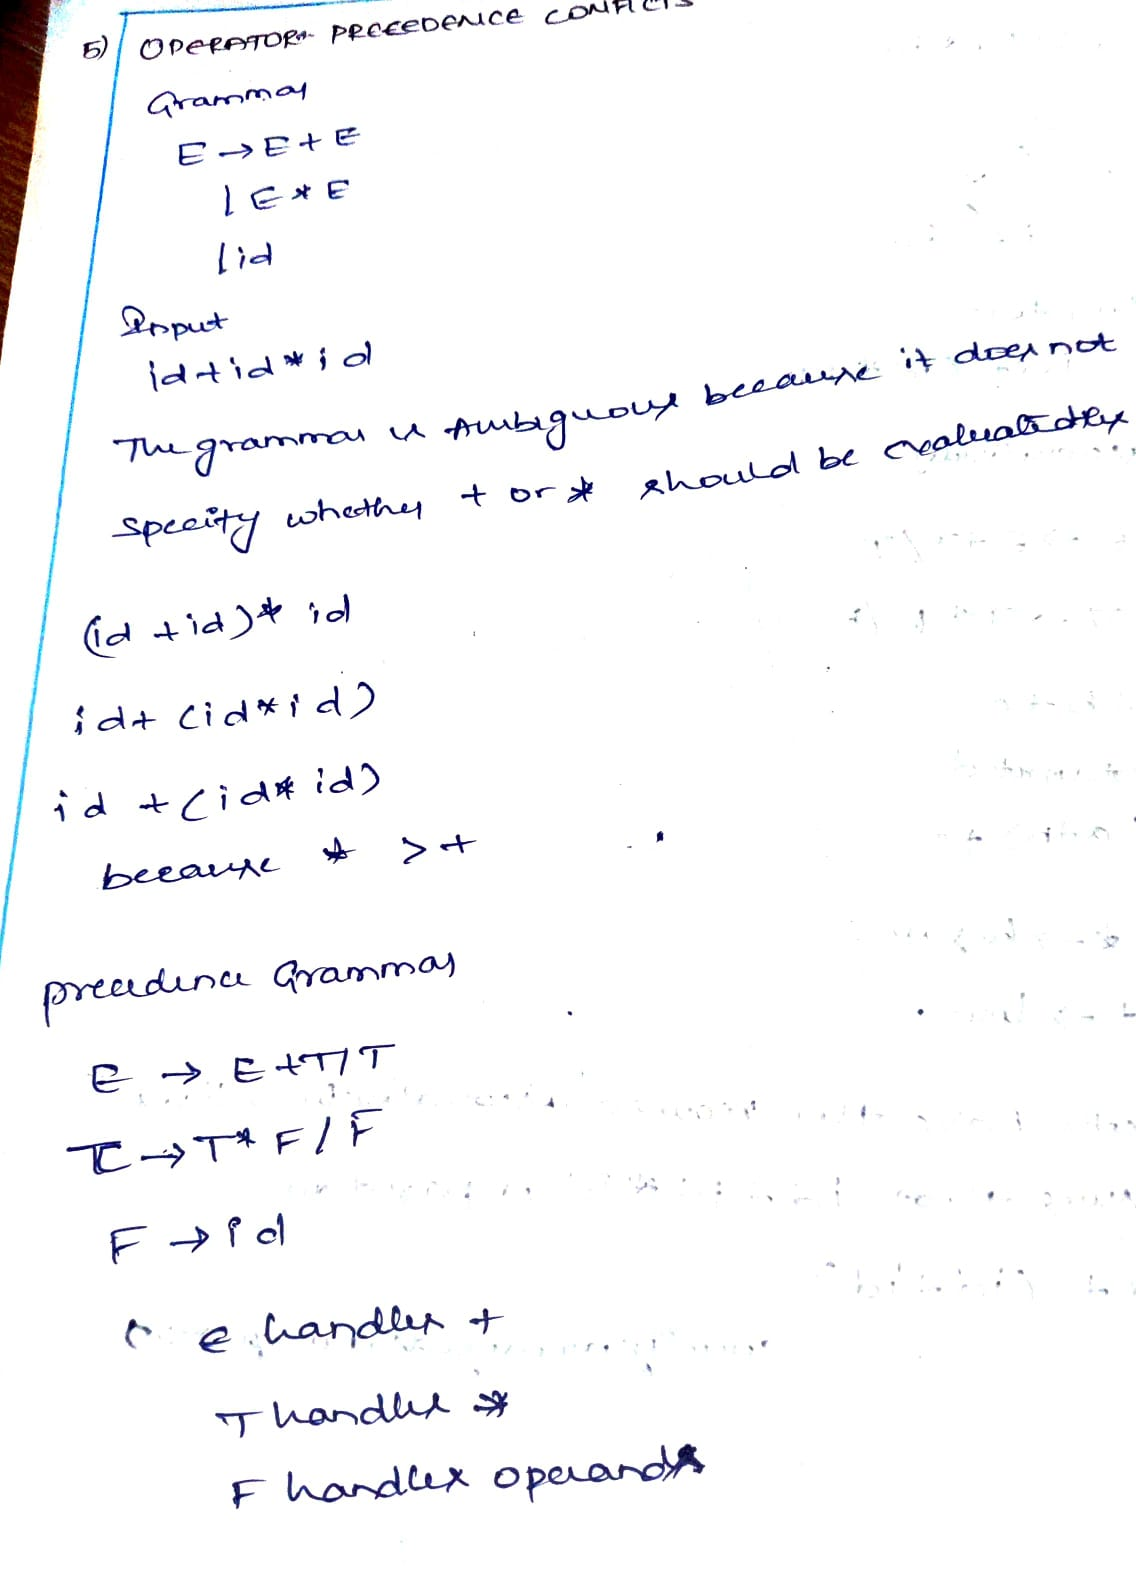 5) OPERATOR PRECEDENCE CONFLICTS
Grammar
E → E + E
| E * E
| id
Input
id + id * id
The grammar is Ambiguous because it does not
specify whether + or * should be evaluated
(id + id) * id
id + (id * id)
id + (id * id)
because * > +
precedence Grammar
E → E + T / T
T → T * F / F
F → id
e handles +
T handles *
F handles operands